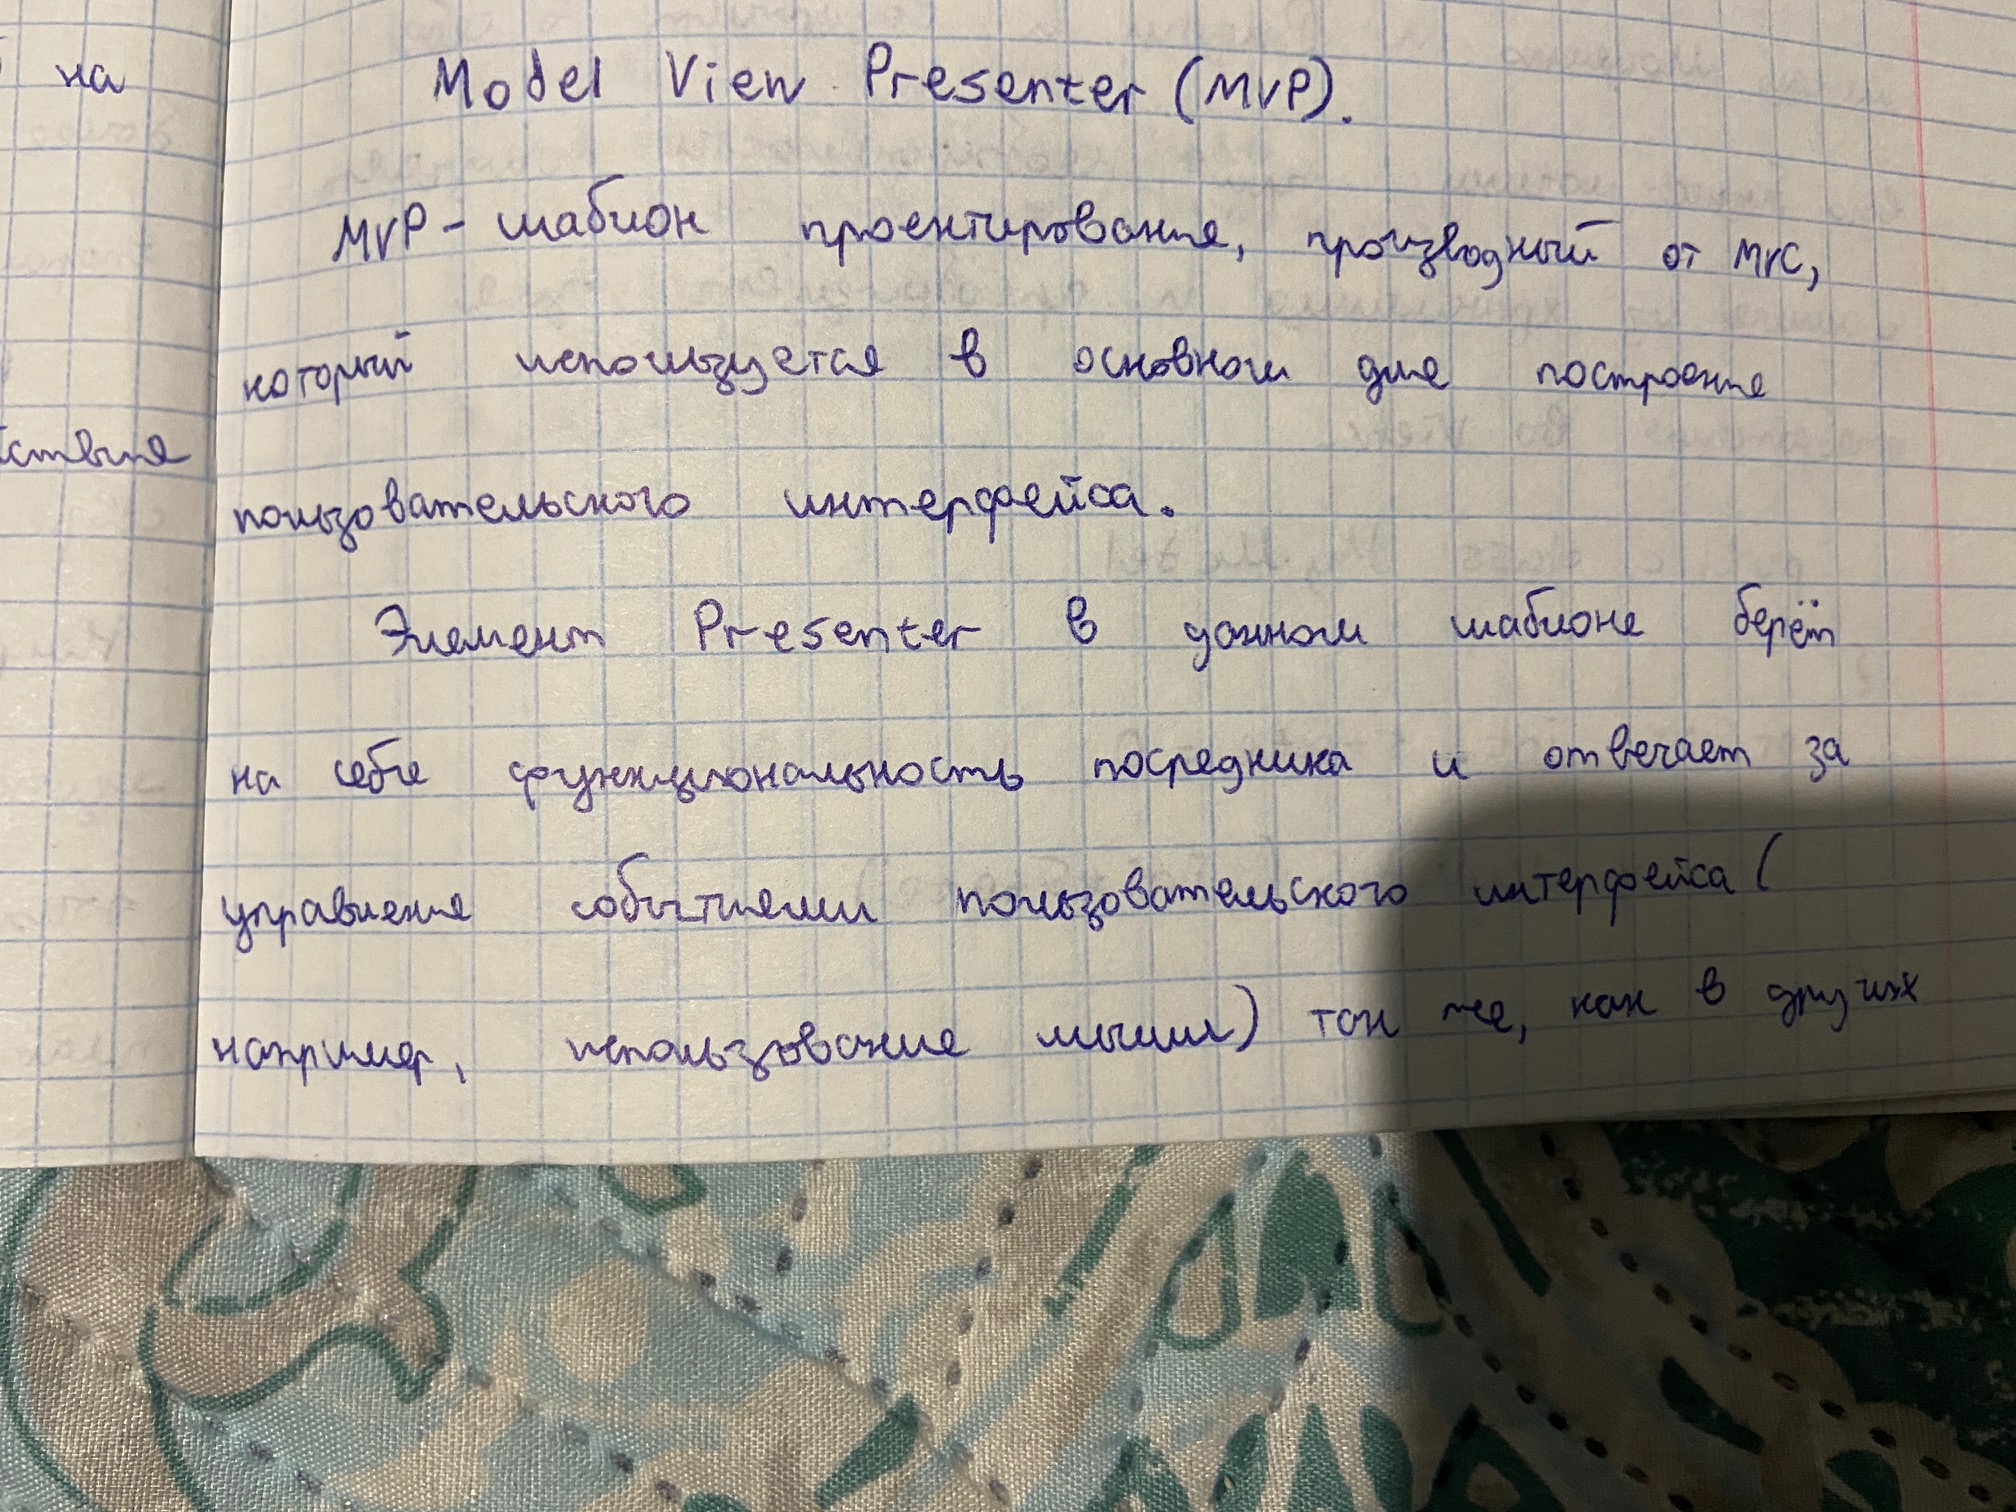 на
йствие
Model View Presenter (MVP).
MVP - шаблон проектирование, производный от MVC,
который используется в основном для построение
пользовательского интерфейса.
Элемент Presenter в данном шаблоне берёт
на себе функциональность посредника и отвечает за
управление событиями пользовательского интерфейса (
например, использование мыши) так же, как в других